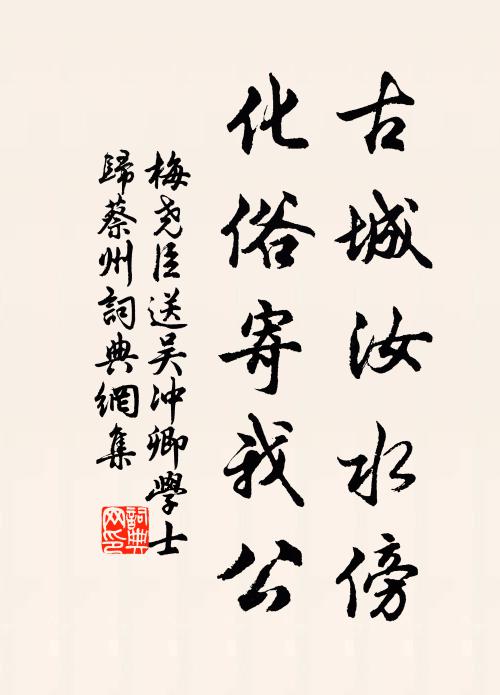 古城汝水傍
化俗寄我公
梅尧臣送吴冲卿學士
歸蔡州詞典網集
詞典
网印